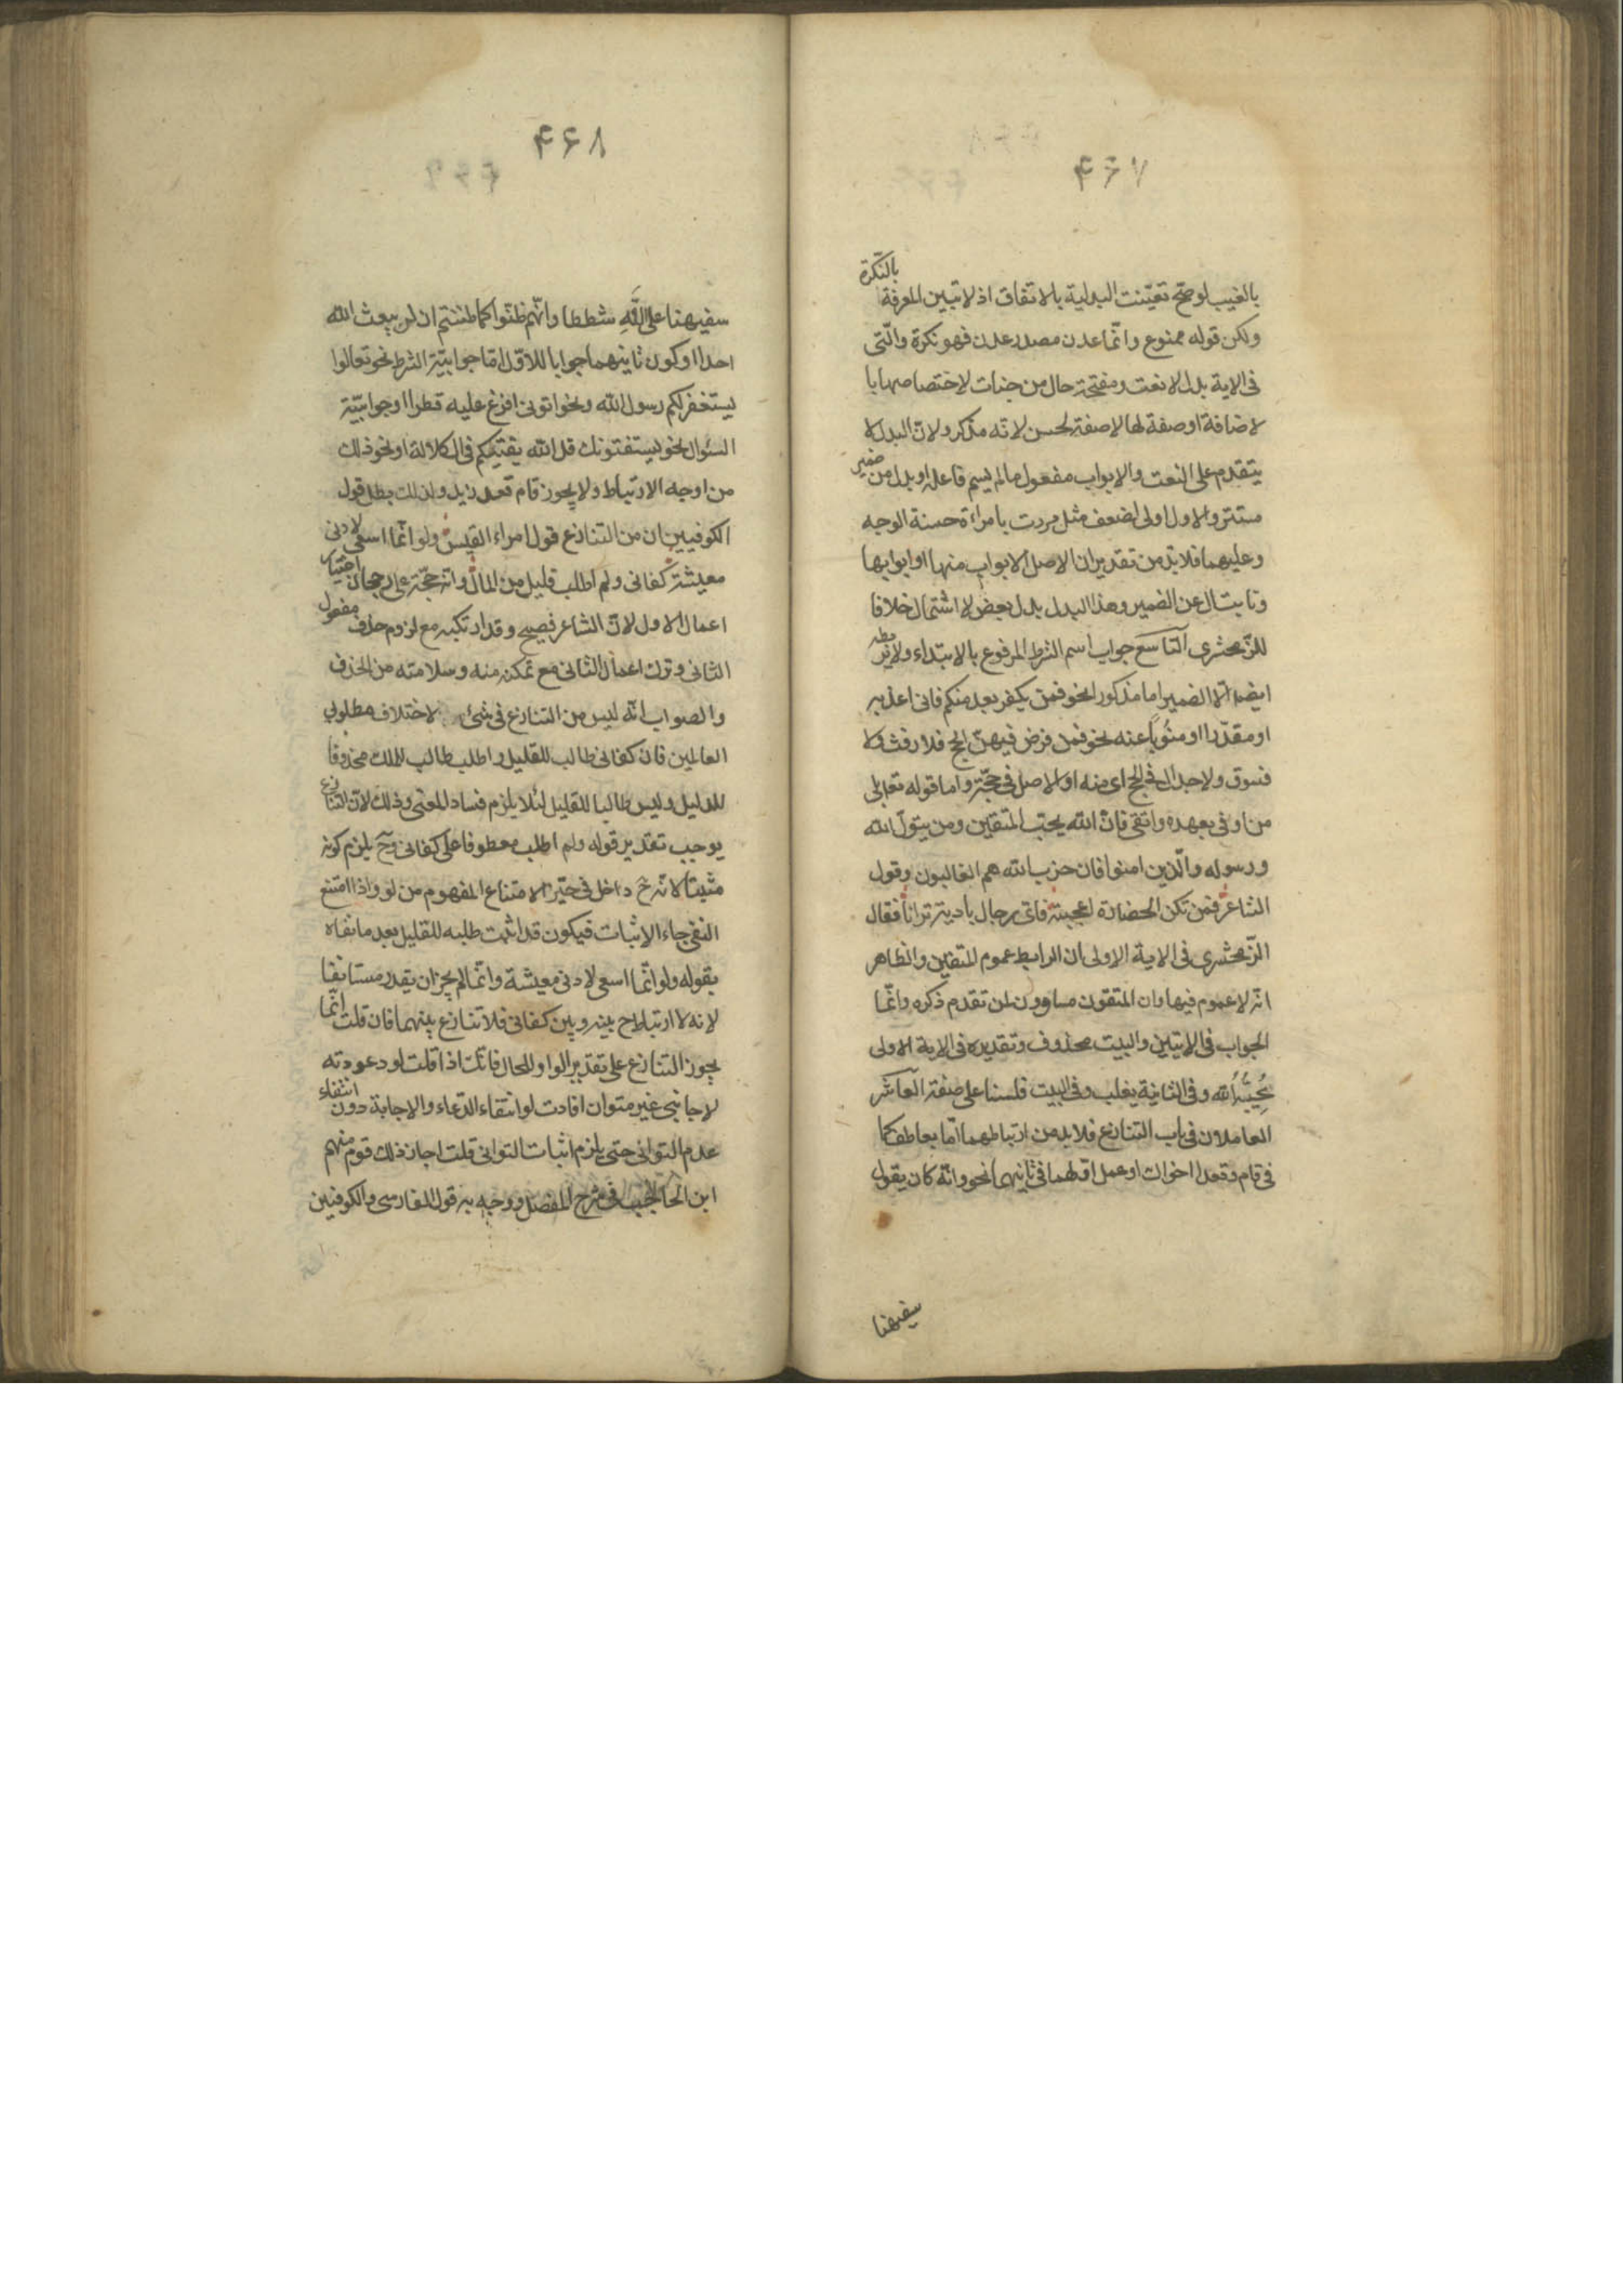 ۴۶۷
بالنكرة
بالغيب لو صحّ تعيّنت البدلية بالاتفاق اذ لا تبين المعرفة
ولكن قوله ممنوع وانّما عدن مصدر عدن فهو نكرة والّتى
فى الاية بدل لا نعت ومفتحة حال من جنات لاختصاصها با
لاضافة او صفة لها لا صفة لحسن لانه مذكر ولانّ البدل لا
يتقدم على النعت والابواب مفعول ما لم يسم فاعله او بدل من ضمير
مستتر والاول اولى لضعف مثل مررت بامراءة حسنة الوجه
وعليهما فلا بدّ من تقدير ان الاصل الابواب منها او ابوابها
ونابت ال عن الضمير وهذا البدل بدل بعض لا اشتمال خلافا
للزّمخشرى التاسع جواب اسم الشرط المرفوع بالابتداء ولا يربطه
ايضا الّا الضمير اما مذكورا نحو فمن يكفر بعد منكم فانى اعذبه
او مقدّرا او منُوباً عنه نحو فمن فرض فيهنّ الحج فلا رفث ولا
فسوق ولا جدال فى الحج اى منه او الاصل فى حجّه واما قوله تعالى
من اوفى بعهده واتقى فانّ الله يحبّ المتقين ومن يتولّ الله
ورسوله والّذين امنوا فان حزب الله هم الغالبون وقول
الشاعر فمن تكن الحضارة اعجبته فاىّ رجال بادية ترانا فقال
الزّمخشرى فى الاية الاولى ان الرابط عموم المتقين والظاهر
انّه لا عموم فيها وان المتقون مساوون لمن تقدم ذكره وانّما
الجواب فى الايتين والبيت محذوف وتقديره فى الاية الاولى
يُحِبُّهُ الله وفى الثانية يغلب وفى البيت فلسنا على صفته العاشر
العاملان فى باب التنازع فلا بد من ارتباطهما امّا بعاطف كما
فى قام وقعد اخواك او عمل اوّلهما فى ثانيهما نحو وانّه كان يقول
سفيهنا
۴۶۸
سفيهنا على اللَّهِ شططا وانّهم ظنّوا كما ظننتم ان لن يبعث الله
احدا او كون ثانيهما جوابا للاوّل امّا جوابيّة الشرط نحو تعالوا
يستغفر لكم رسول الله ونحو اتونى افرغ عليه قطرا او جوابيّة
السّؤال نحو يستفتونك قل الله يفتيكم فى الكلالة او نحو ذلك
من اوجه الارتباط ولا يجوز قام قعد زيد ولذلك بطل قول
الكوفيين ان من التنازع قول امراء القيس ولو انّما اسعى لادنى
معيشة كفانى ولم اطلب قليل من المال وانه حجّة على رجحان اختيار
اعمال الاول لانّ الشاعر فصيح وقد ارتكبه مع لزوم حذف مفعول
الثانى وترك اعمال الثانى مع تمكنه منه وسلامته من الحذف
والصواب انّه ليس من التنازع فى شئ لاختلاف مطلوبى
العاملين فان كفانى طالب للقليل واطلب طالب للملك محذوفا
للدليل وليس طالبا للقليل لئلا يلزم فساد المعنى وذلك لانّ التنازع
يوجب تقدير قوله ولم اطلب معطوفا على كفانى وحّ يلزم كونه
مثبتا لانّه حّ داخل فى حيّز الامتناع المفهوم من لو واذا امتنع
النفى جاء الاثبات فيكون قد اثبت طلبه للقليل بعد ما نفاه
بقوله ولو انّما اسعى لادنى معيشة وانّما لم يجز ان يقدر مستانفا
لانه لا ارتباط ح بينه وبين كفانى فلا تنازع بينهما فان قلت انّما
يجوز التنازع على تقدير الواو للحال فانّك اذا قلت لو دعوته
لاجابنى غير متوان افادت لو انتفاء الدّعاء والاجابة دون انتفاء
عدم التوانى حتى يلزم اثبات التوانى قلت اجاز ذلك قوم منهم
ابن الحاجب فى شرح المفصل ووجه به قول الفارسى والكوفيين